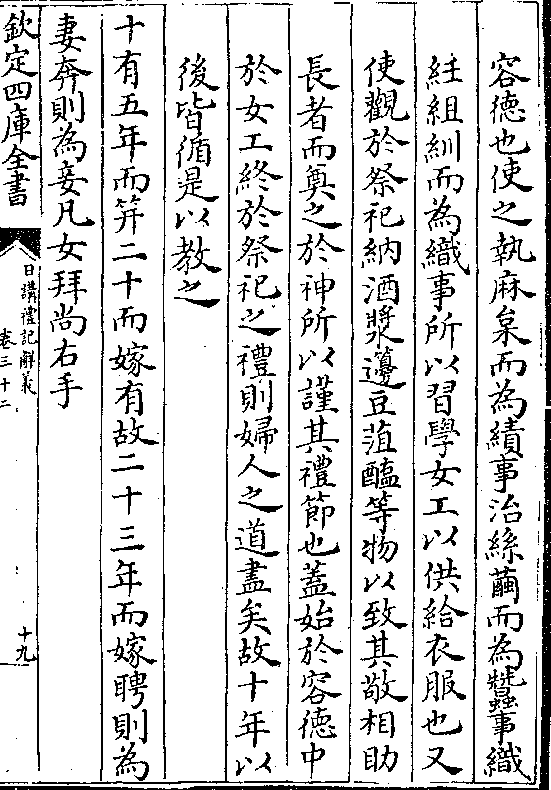 容德也使之執麻枲而為績事治絲繭而為蠶事織
紝組紃而為織事所以習學女工以供給衣服也又
使觀於祭祀納酒漿籩豆菹醢等物以致其敬相助
長者而奠之於神所以謹其禮節也蓋始於容德中
於女工終於祭祀之禮則婦人之道盡矣故十年以
後皆循是以教之
十有五年而笄二十而嫁有故二十三年而嫁聘則為
妻奔則為妾凡女拜尚右手
欽定四庫全書
日講禮記解義
卷三十二
十九